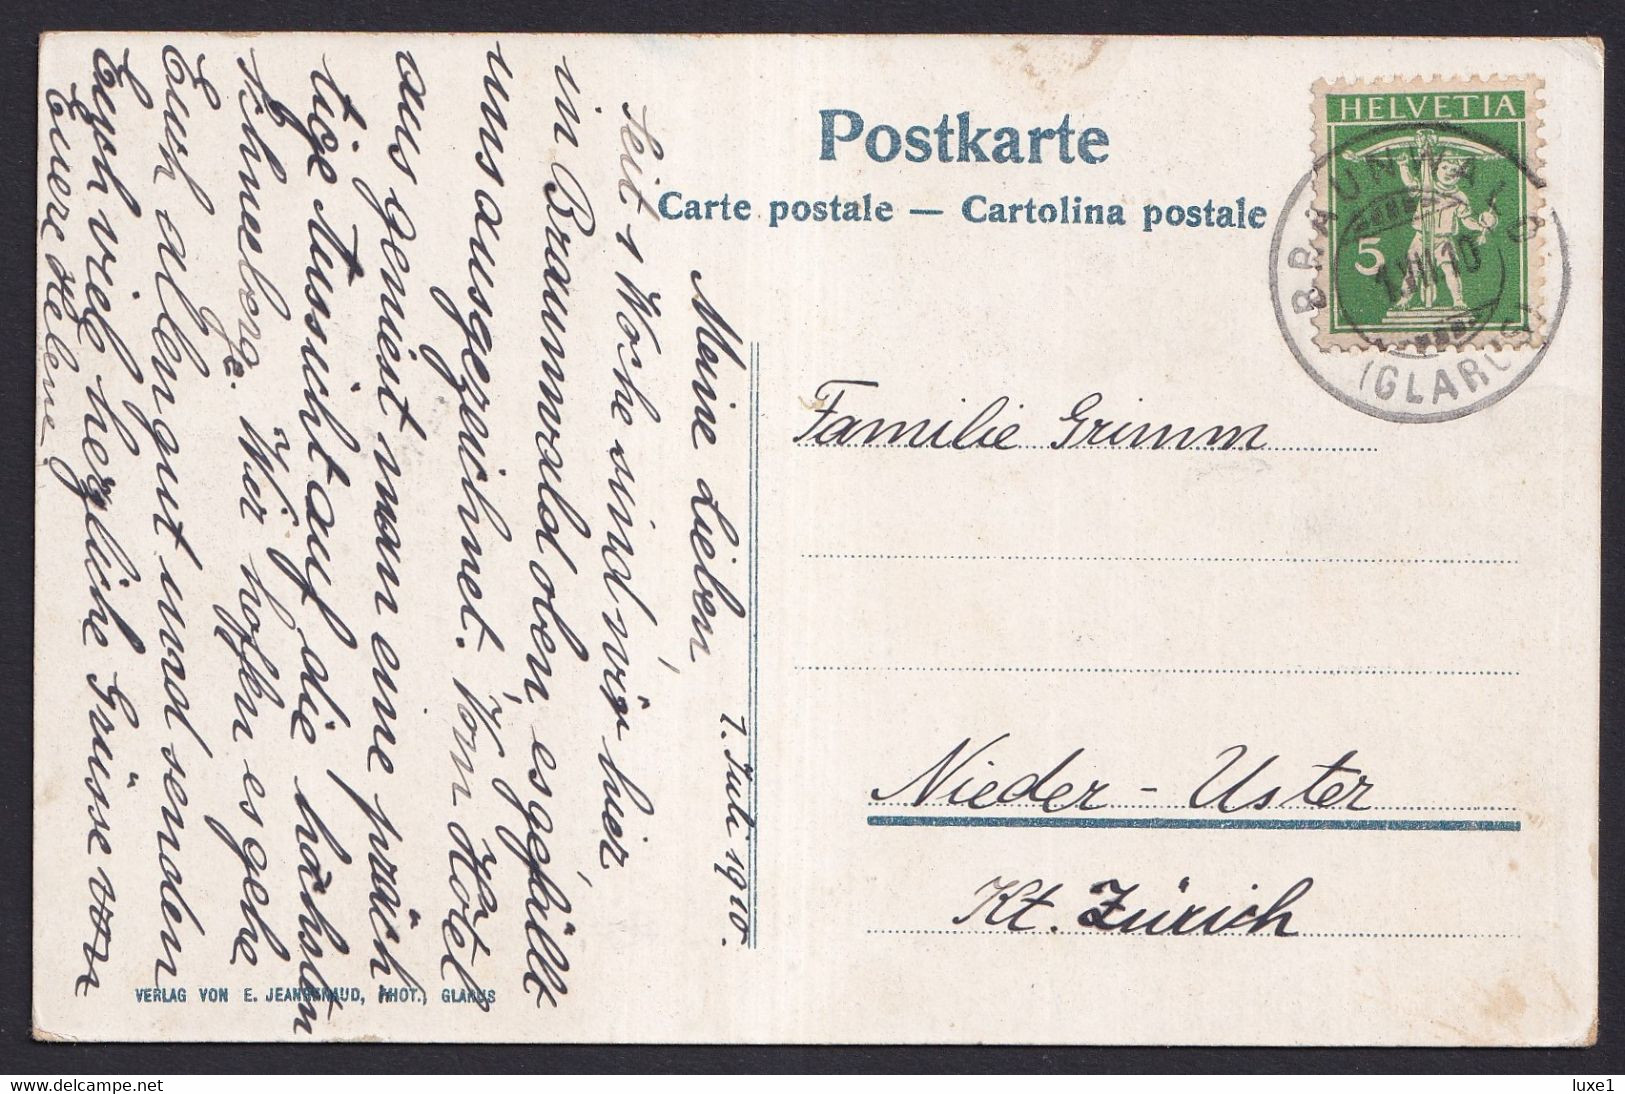 Postkarte
Carte postale — Cartolina postale
HELVETIA
5
BRAUNWALD
1.VII.10
(GLARUS)
7. Juli 1910.
Meine Lieben
Seit 1 Woche sind wir hier
in Braunwald oben, es gefällt
uns ausgezeichnet. Vom Hotel
aus geniest man eine präch
tige Aussicht auf die höhsten
Schneeberge. Wir hoffen es gehe
Euch allen gut und senden
Euch viele herzliche Grüsse von
Euere Helene.
Familie Grimm
Nieder-Uster
Kt. Zürich
VERLAG VON E. JEANRENAUD, (PHOT.) GLARUS
delcampe.net
luxe1